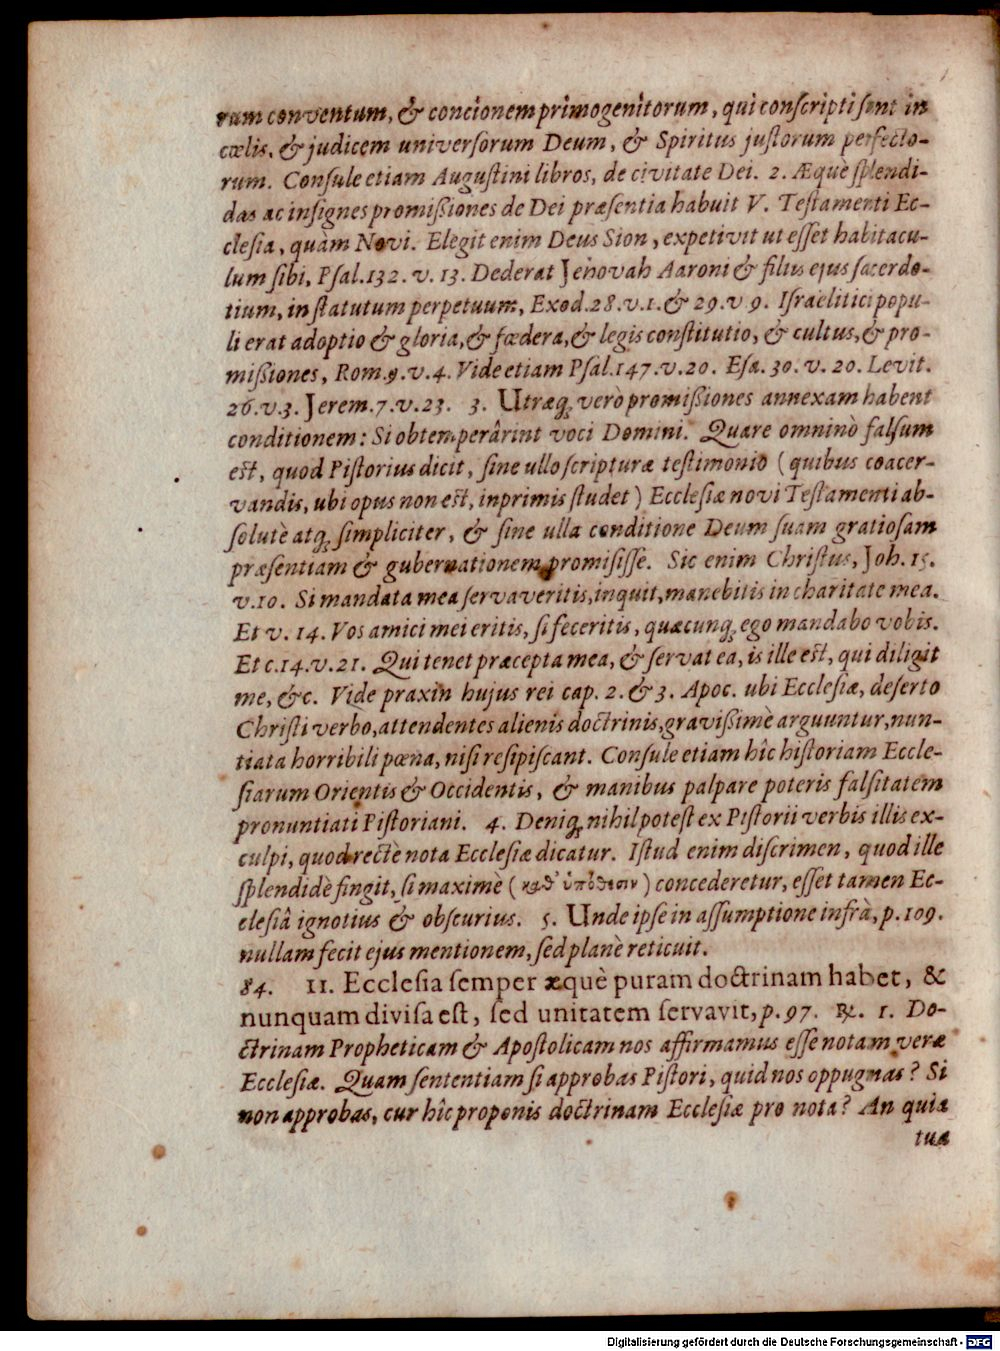 rum conventum, & concionem primogenitorum, qui conscripti sunt in
cœlis, & judicem universorum Deum, & Spiritus justorum perfecto-
rum. Consule etiam Augustini libros, de civitate Dei. 2. Æquè splendi-
das ac insignes promißiones de Dei præsentia habuit V. Testamenti Ec-
clesia, quàm Novi. Elegit enim Deus Sion, expetivit ut esset habitacu-
lum sibi, Psal.132. v. 13. Dederat Jehovah Aaroni & filiis ejus sacerdo-
tium, in statutum perpetuum, Exod.28.v.1.& 29.v 9. Israelitici popu-
li erat adoptio & gloria, & fœdera, & legis constitutio, & cultus, & pro-
mißiones, Rom.9.v.4. Vide etiam Psal.147.v.20. Esa. 30. v. 20. Levit.
26.v.3. Jerem.7.v.23. 3. Utræq; verò promißiones annexam habent
conditionem: Si obtemperârint voci Domini. Quare omninò falsum
est, quod Pistorius dicit, sine ullo scripturæ testimonio (quibus coacer-
vandis, ubi opus non est, inprimis studet) Ecclesiæ novi Testamenti ab-
solutè atq; simpliciter, & sine ulla conditione Deum suam gratiosam
præsentiam & gubernationem promisisse. Sic enim Christus, Joh. 15.
v.10. Si mandata mea servaveritis, inquit, manebitis in charitate mea.
Et v. 14. Vos amici mei eritis, si feceritis, quæcunq; ego mandabo vobis.
Et c.14.v.21. Qui tenet præcepta mea, & servat ea, is ille est, qui diligit
me, &c. Vide praxin hujus rei cap. 2. & 3. Apoc. ubi Ecclesiæ, deserto
Christi verbo, attendentes alienis doctrinis, gravißimè arguuntur, nun-
tiata horribili pœna, nisi resipiscant. Consule etiam hîc historiam Eccle-
siarum Orientis & Occidentis, & manibus palpare poteris falsitatem
pronuntiati Pistoriani. 4. Deniq; nihil potest ex Pistorii verbis illis ex-
culpi, quod rectè nota Ecclesiæ dicatur. Istud enim discrimen, quod ille
splendidè fingit, si maximè (καθ' ὑπόθεσιν) concederetur, esset tamen Ec-
clesiâ ignotius & obscurius. 5. Unde ipse in assumptione infrà, p.109.
nullam fecit ejus mentionem, sed planè reticuit.
84. 11. Ecclesia semper æquè puram doctrinam habet, &
nunquam divisa est, sed unitatem servavit, p.97. ℞. 1. Do-
ctrinam Propheticam & Apostolicam nos affirmamus esse notam veræ
Ecclesiæ. Quam sententiam si approbas Pistori, quid nos oppugnas? Si
non approbas, cur hîc proponis doctrinam Ecclesiæ pro nota? An quia
tua
Digitalisierung gefördert durch die Deutsche Forschungsgemeinschaft - DFG